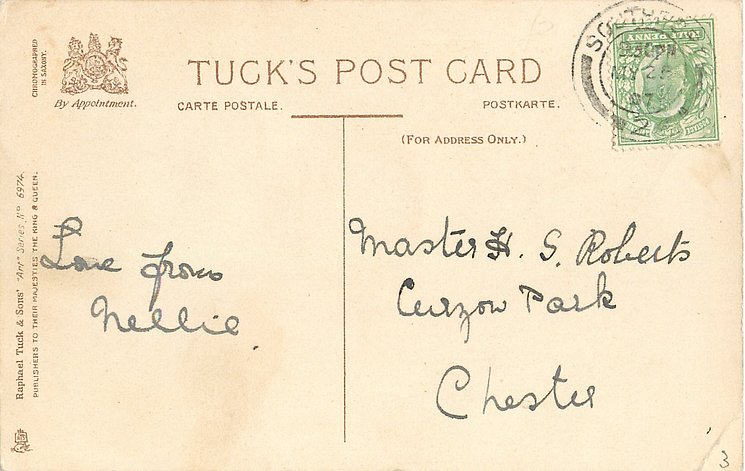 CHROMOGRAPHED
IN SAXONY.
By Appointment.
TUCK'S POST CARD
CARTE POSTALE.
POSTKARTE.
(FOR ADDRESS ONLY.)
HALFPENNY
Raphael Tuck & Sons' "Art" Series No 6974.
PUBLISHERS TO THEIR MAJESTIES THE KING & QUEEN.
Love from
Nellie.
Master H. S. Roberts
Curzon Park
Chester
3